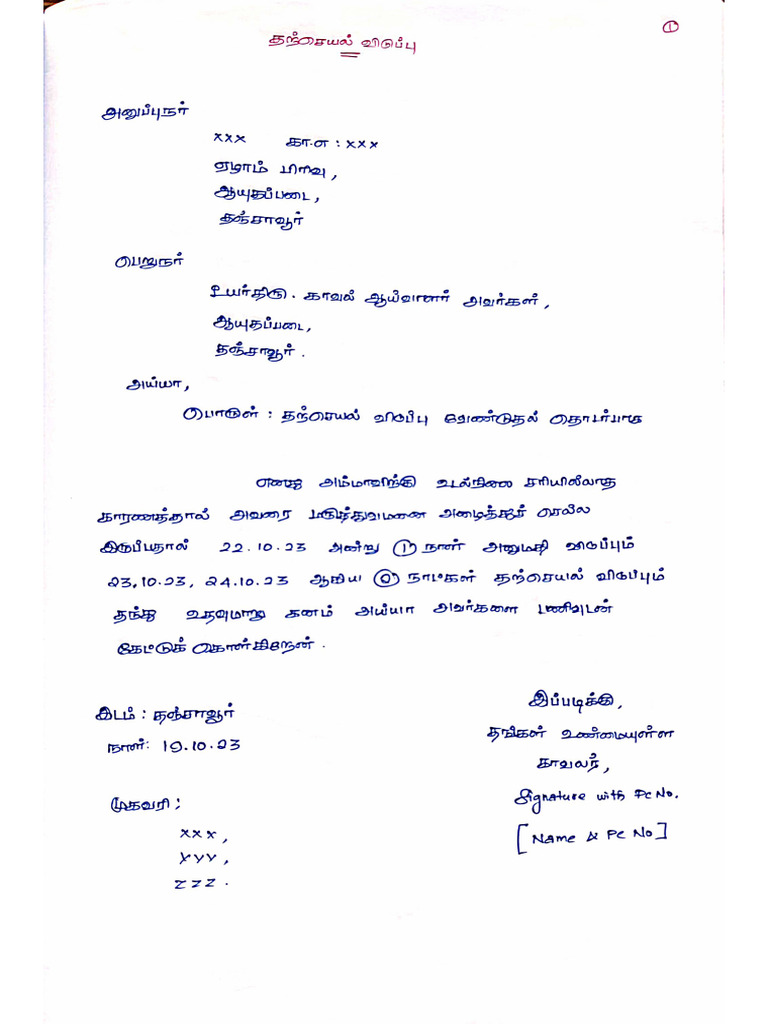 ①
தற்செயல் விடுப்பு
அனுப்புநர்
xxx கா.எ : xxx
ஏழாம் பிரிவு,
ஆயுதப்படை,
தஞ்சாவூர்
பெறுநர்
உயர்திரு. காவல் ஆய்வாளர் அவர்கள்,
ஆயுதப்படை,
தஞ்சாவூர்.
அய்யா,
பொருள் : தற்செயல் விடுப்பு வேண்டுதல் தொடர்பாக
எனது அம்மாவிற்கு உடல்நிலை சரியில்லாத
காரணத்தால் அவரை மருத்துவமனை அழைத்துச் செல்ல
இருப்பதால் 22.10.23 அன்று ① நாள் அனுமதி விடுப்பும்
23.10.23, 24.10.23 ஆகிய ② நாட்கள் தற்செயல் விடுப்பும்
தந்து உதவுமாறு கனம் அய்யா அவர்களை பணிவுடன்
கேட்டுக் கொள்கிறேன்.
இடம் : தஞ்சாவூர்
நாள்: 19.10.23
இப்படிக்கு,
தங்கள் உண்மையுள்ள
காவலர்,
Signature with Pc No.
[Name & Pc No]
முகவரி :
xxx,
YYY,
ZZZ.